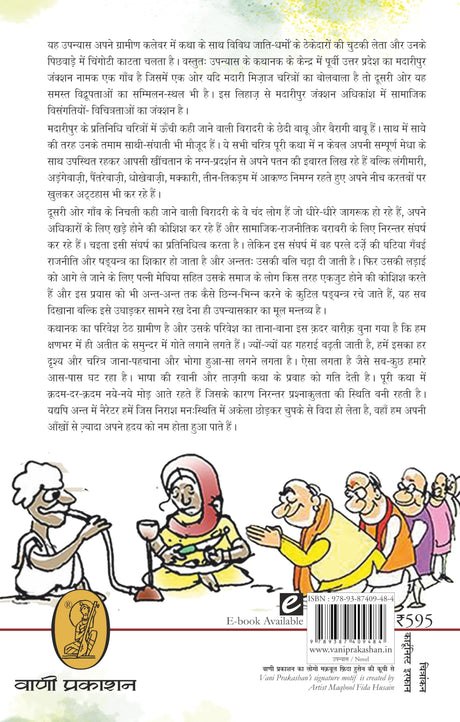 यह उपन्यास अपने ग्रामीण कलेवर में कथा के साथ विविध जाति-धर्मों के ठेकेदारों की चुटकी लेता और उनके
पिछवाड़े में चिंगोटी काटता चलता है। वस्तुतः उपन्यास के कथानक के केन्द्र में पूर्वी उत्तर प्रदेश का मदारीपुर
जंक्शन नामक एक गाँव है जिसमें एक ओर यदि मदारी मिज़ाज चरित्रों का बोलवाला है तो दूसरी ओर यह
समस्त विद्रूपताओं का सम्मिलन-स्थल भी है। इस लिहाज़ से मदारीपुर जंक्शन अधिकांश में सामाजिक
विसंगतियों- विचित्रताओं का जंक्शन है।
मदारीपुर के प्रतिनिधि चरित्रों में ऊँची कही जाने वाली बिरादरी के छेदी बाबू और बैरागी बाबू हैं। साथ में साये
की तरह उनके तमाम साथी-संघाती भी मौजूद हैं। ये सभी चरित्र पूरी कथा में न केवल अपनी सम्पूर्ण मेधा के
साथ उपस्थित रहकर आपसी खींचतान के नग्न-प्रदर्शन से अपने पतन की इबारत लिख रहे हैं बल्कि लंगीमारी,
अड़ंगेवाज़ी, पैंतरेवाज़ी, धोखेवाज़ी, मक्कारी, तीन-तिकड़म में आकण्ठ निमग्न रहते हुए अपने नीच करतबों पर
खुलकर अट्टहास भी कर रहे हैं।
दूसरी ओर गाँव के निचली कही जाने वाली बिरादरी के वे चंद लोग हैं जो धीरे-धीरे जागरूक हो रहे हैं, अपने
अधिकारों के लिए खड़े होने की कोशिश कर रहे हैं और सामाजिक-राजनीतिक बराबरी के लिए निरन्तर संघर्ष
कर रहे हैं। चइता इसी संघर्ष का प्रतिनिधित्व करता है। लेकिन इस संघर्ष में वह परले दर्ज़े की घटिया गँवई
राजनीति और षड्यन्त्र का शिकार हो जाता है और अन्ततः उसकी बलि चढ़ा दी जाती है। फिर उसकी लड़ाई
को आगे ले जाने के लिए पत्नी मेघिया सहित उसके समाज के लोग किस तरह एकजुट होने की कोशिश करते
हैं और इस प्रयास को भी अन्त-अन्त तक कैसे छिन्न-भिन्न करने के कुटिल षड्यन्त्र रचे जाते हैं, यह सब
दिखाना बल्कि इसे उघाड़कर सामने रख देना ही उपन्यासकार का मूल मन्तव्य है।
कथानक का परिवेश ठेठ ग्रामीण है और उसके परिवेश का ताना-बाना इस क़दर बारीक़ बुना गया है कि हम
क्षणभर में ही अतीत के समुन्दर में गोते लगाने लगते हैं। ज्यों-ज्यों यह गहराई बढ़ती जाती है, हमें इसका हर
दृश्य और चरित्र जाना-पहचाना और भोगा हुआ-सा लगने लगता है। ऐसा लगता है जैसे सब-कुछ हमारे
आस-पास घट रहा है। भाषा की रवानी और ताज़गी कथा के प्रवाह को गति देती है। पूरी कथा में
क़दम-दर-क़दम नये-नये मोड़ आते रहते हैं जिसके कारण निरन्तर प्रश्नाकुलता की स्थिति बनी रहती है।
यद्यपि अन्त में नैरेटर हमें जिस निराश मनःस्थिति में अकेला छोड़कर चुपके से विदा हो लेता है, वहाँ हम अपनी
आँखों से ज़्यादा अपने हृदय को नम होता हुआ पाते हैं।
वाणी प्रकाशन
e
E-book Available
ISBN : 978-93-87409-48-4
9 789387 409484
www.vaniprakashan.in
उपन्यास / Novel
₹595
वाणी प्रकाशन का लोगो मक़बूल फ़िदा हुसेन की कूची से
Vani Prakashan's signature motif is created by
Artist Maqbool Fida Husain
चित्रांकन
कार्टूनिस्ट इरफ़ान